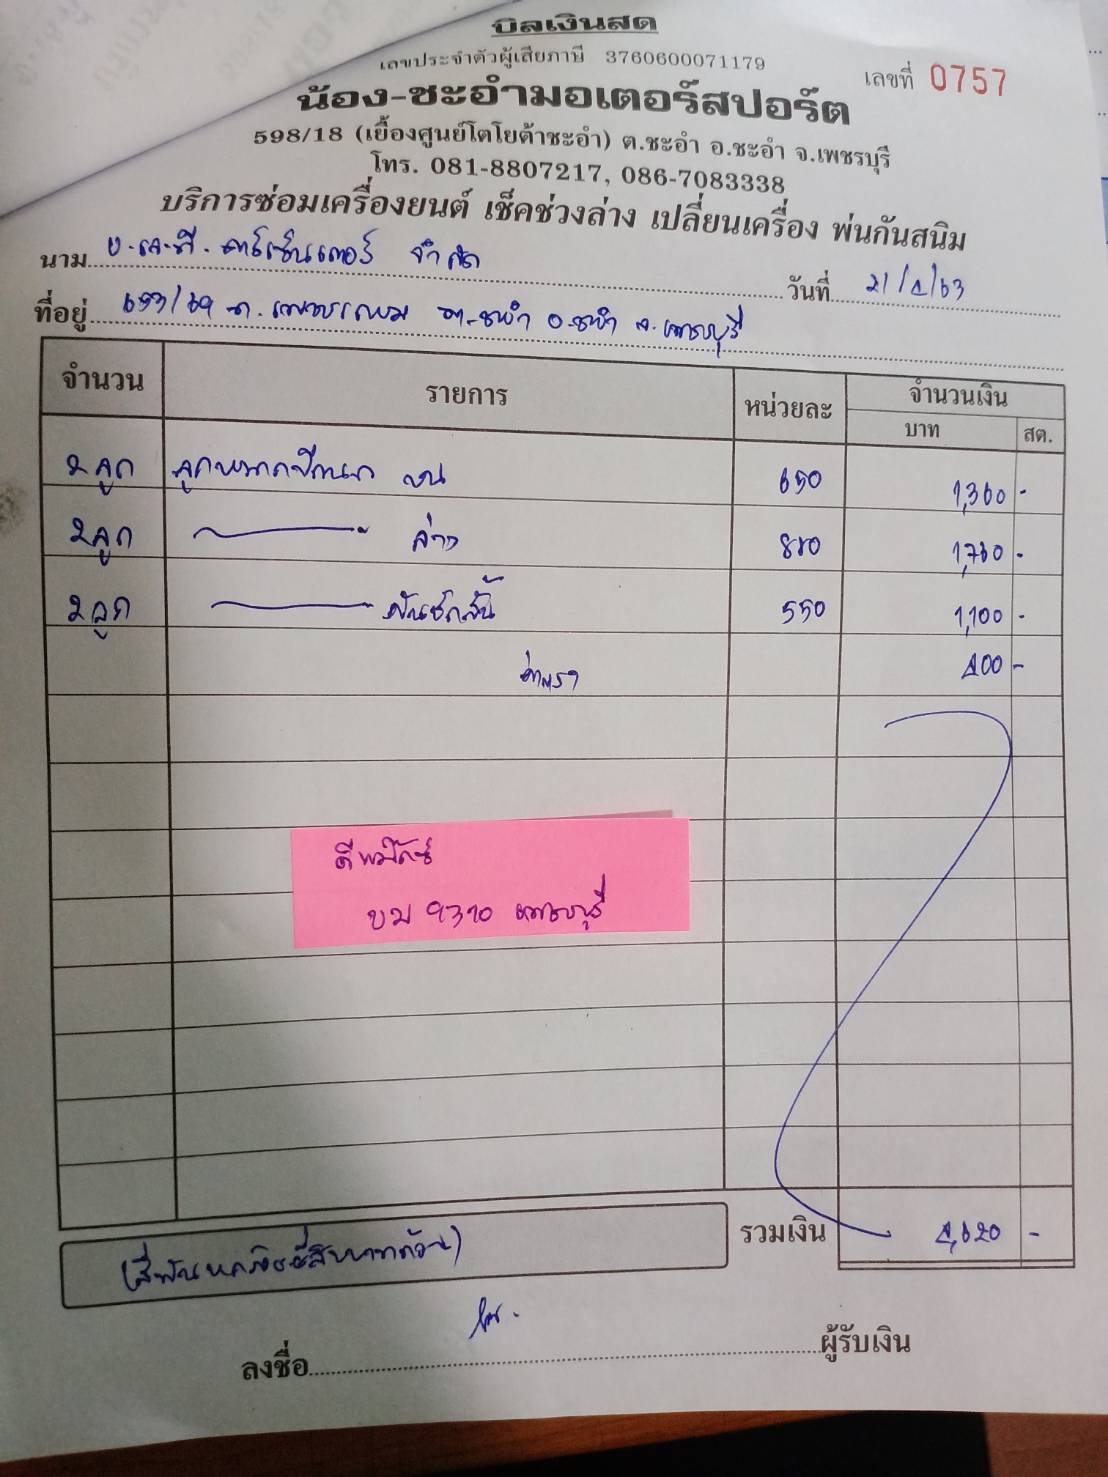 บิลเงินสด
เลขประจำตัวผู้เสียภาษี 3760600071179
เลขที่ 0757
น้อง-ชะอำมอเตอร์สปอร์ต
598/18 (เยื้องศูนย์โตโยต้าชะอำ) ต.ชะอำ อ.ชะอำ จ.เพชรบุรี
โทร. 081-8807217, 086-7083338
บริการซ่อมเครื่องยนต์ เช็คช่วงล่าง เปลี่ยนเครื่อง พ่นกันสนิม
นาม บ.เค.ที.คาร์เซ็นเตอร์ จำกัด
วันที่ 21/4/63
ที่อยู่ 653/69 ถ.เพชรเกษม ต.ชะอำ อ.ชะอำ จ.เพชรบุรี
จำนวน รายการ หน่วยละ จำนวนเงิน
บาท สต.
2 ลูก ลูกหมากปีกนก บน 650 1,360 -
2 ลูก ล่าง 1,760 -
2 ลูก คันชักสั้น 550 1,100 -
ค่าแรง 400 -
ดีแม็กซ์
บม 9310 เพชรบุรี
รวมเงิน 4,620 -
(สี่พันหกร้อยยี่สิบบาทถ้วน)
ลงชื่อ ผู้รับเงิน